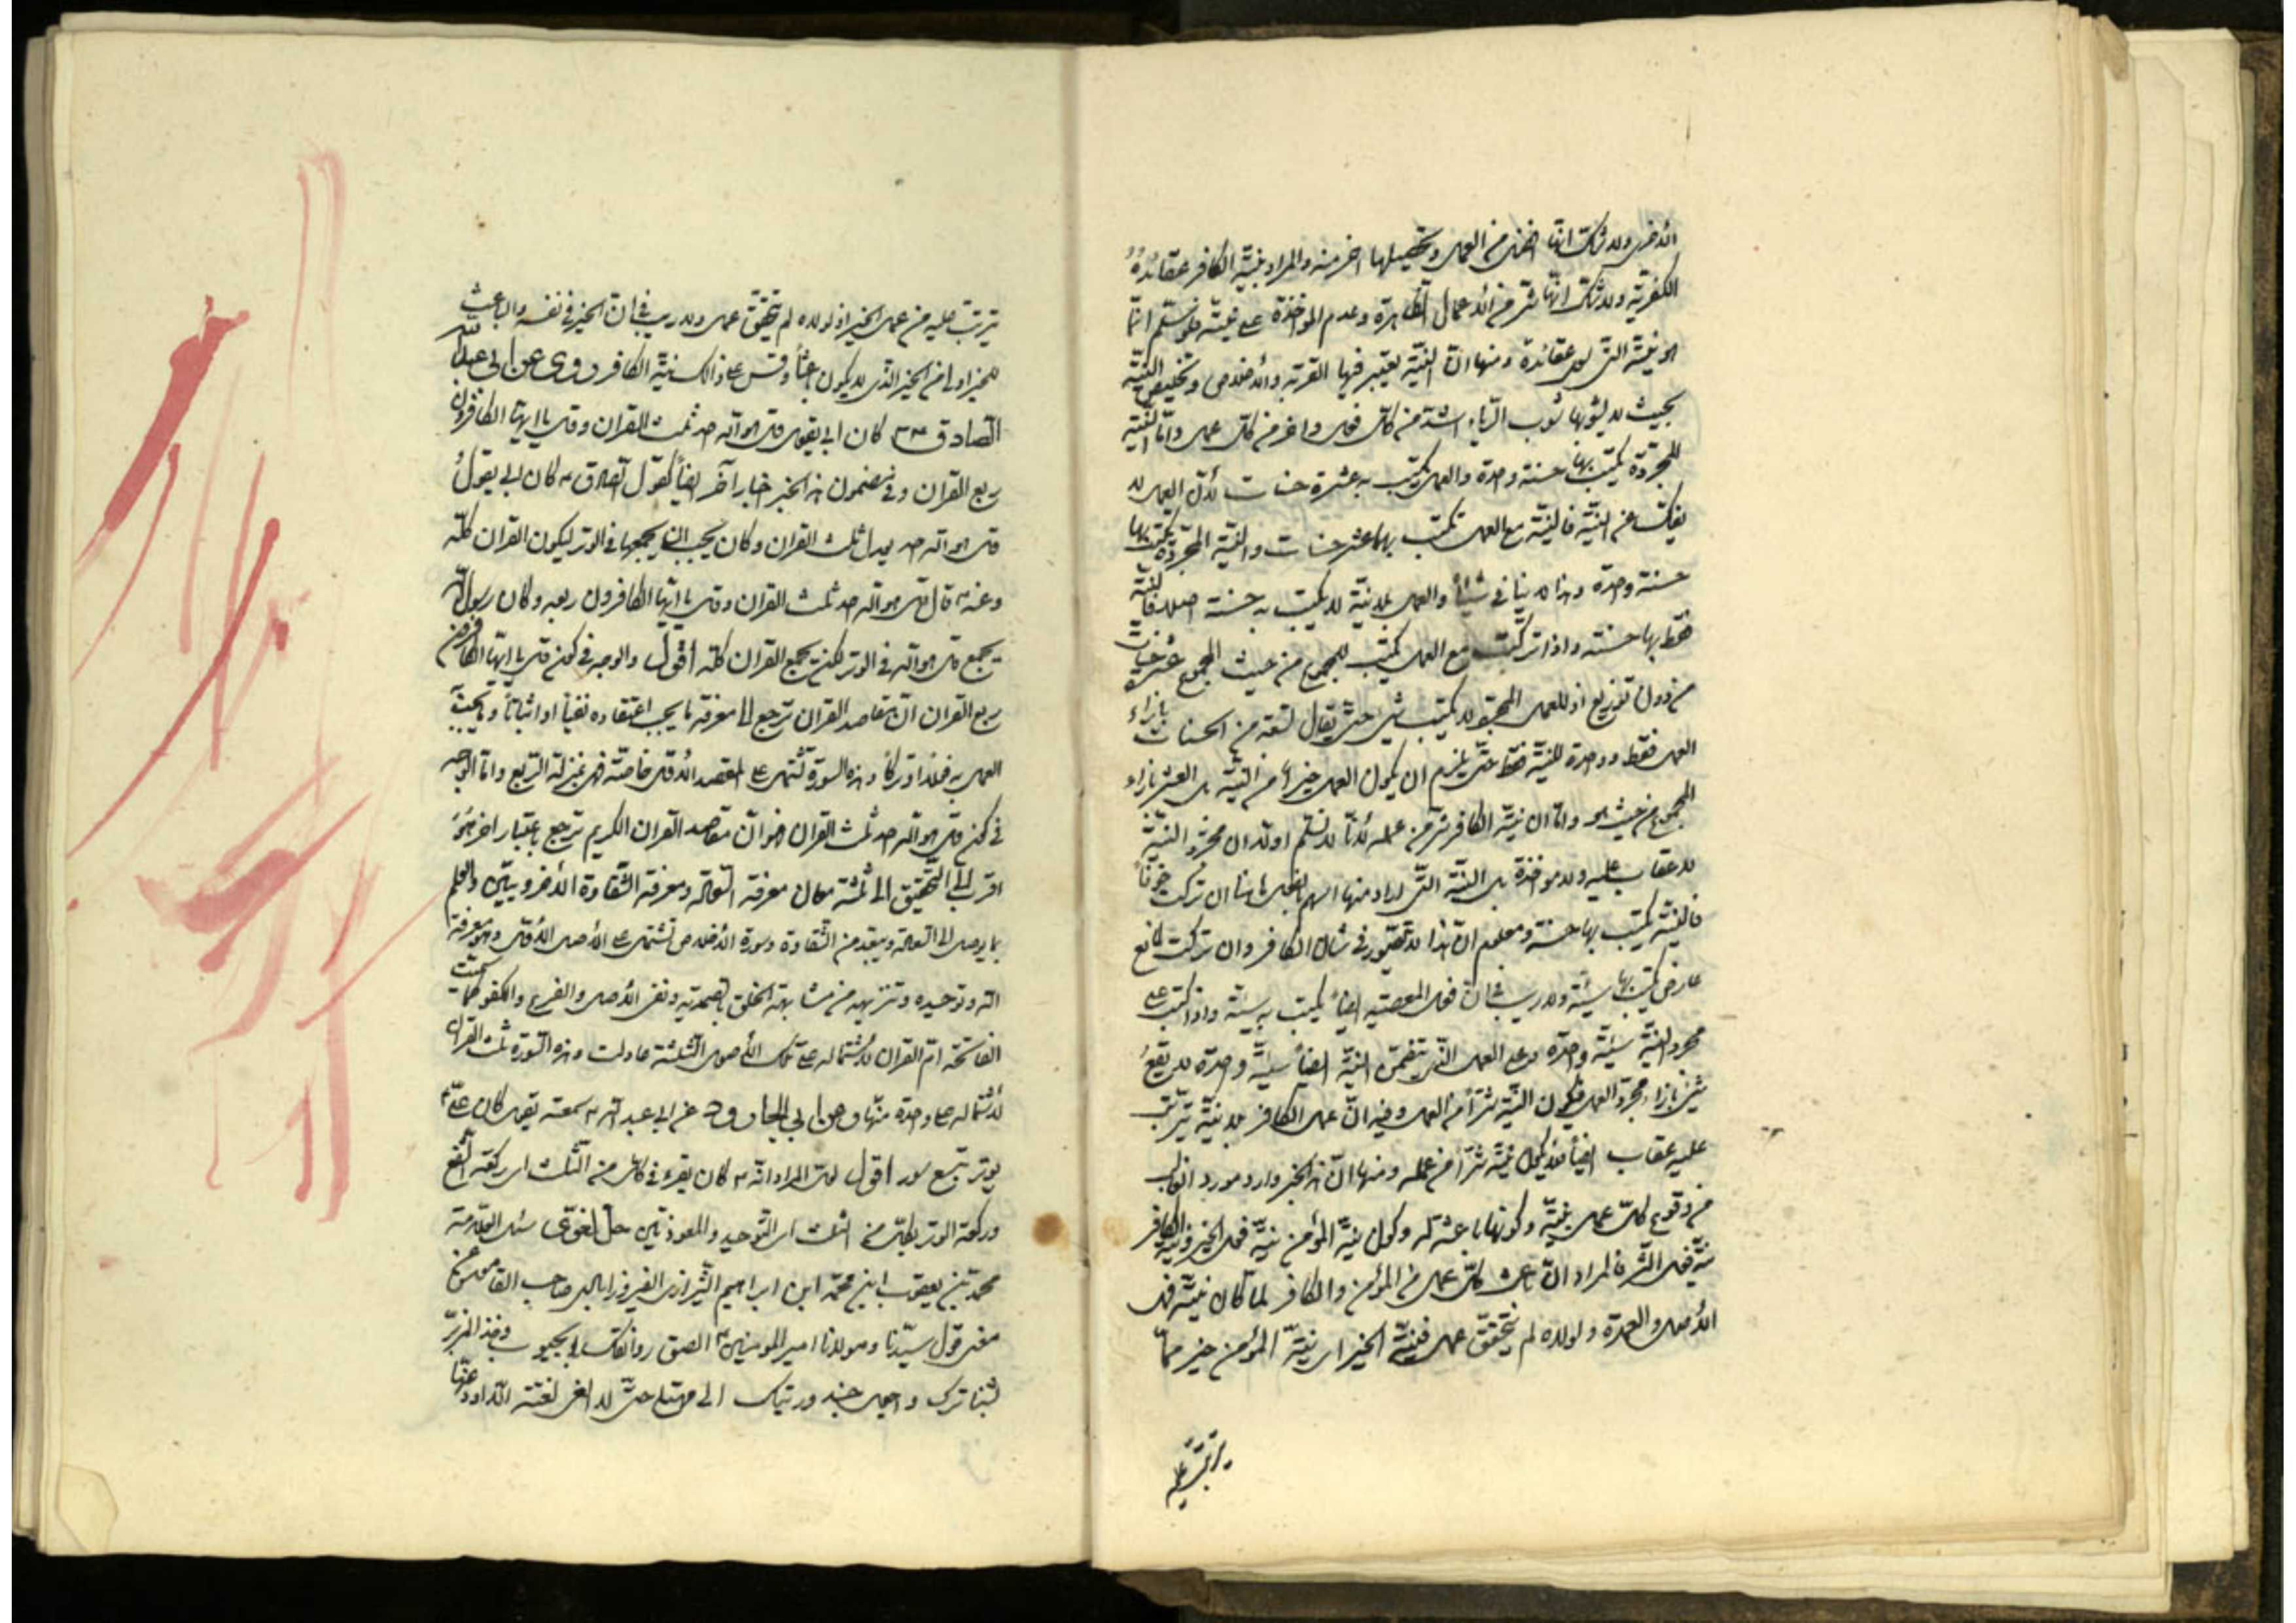 الأخرى ولا شك انها افضل من العمل وتحصيلها احمز منه والمراد بنية الكافر عقائده
الكفرية ولا شك انها شر من الأعمال الظاهرة وعدم المؤاخذة على نيته لو سلم انما
هو نيته التي لا عقائده ومنها ان النية يعتبر فيها القربة والأخلاص وتخليص النية
بحيث لا يشوبها شوب الرياء اشد من كل فعل واحمز من كل عمل واما النية
المجردة يكتب بها حسنة واحدة والعمل يكتب به عشرة حسنات لأن العمل لا
ينفك عن النية فالنية مع العمل تكتب بهما عشر حسنات والنية المجردة يكتب بها
حسنة واحدة وهذا لا ينافي شيئاً والعمل بلا نية لا يكتب به حسنة اصلا فالنية
فقط بها حسنة واذا تركبت مع العمل يكتب للمجموع من حيث المجموع عشر حسنات
من دون توزيع اذ للعمل المجرد لا يكتب شيء حتى يقال تسعة من الحسنات بازاء
العمل فقط وواحدة للنية فقط حتى يلزم ان يكون العمل خيراً من النية بل العشر بازاء
المجموع من حيث هو واما ان نية الكافر شر من عمله لأنا لا نسلم اولا ان مجرد النية
لا عقاب عليه ولا مؤاخذة بل النية التي ان تركت خوفاً
فالنية يكتب بها حسنة ومعلوم ان هذا لا يتصور في شأن الكافر وان تركت لمانع
عارض كتب بها سيئة ولا ريب في ان فعل المعصية ايضاً يكتب به سيئة واذا كتب على
مجرد النية سيئة واحدة وعلى العمل الذي يتضمن النية ايضاً سيئة واحدة لا يقع
شيء بازاء مجرد العمل فيكون النية شراً من العمل وفيه ان عمل الكافر بلا نية يترتب
عليه عقاب ايضاً فلا يكون نيته شراً من عمله ومنها ان هذا الخبر وارد مورد الغالب
من وقوع كل عمل بنية وكونها باعثة له وكون نية المؤمن نية فعل الخير ونية الكافر
نية فعل الشر فالمراد ان باعث كل عمل من المؤمن والكافر لما كان نيته فهي
الأصل والعمدة ولولاه لم يتحقق عمل فنية الخير اي نية المؤمن خير مما
يترتب عليه
يترتب عليه من عمل الخير اذ لولاه لم يتحقق عمل ولا ريب في ان الخير في نفسه والباعث
للخير اولى من الخير الذي لا يكون باعثاً وقس على ذالك نية الكافر روى عن ابي عبد الله
الصادق كان ابي يقول قل هو الله احد ثلث القرآن وقل يا ايها الكافرون
ربع القرآن وفي مضمون هذا الخبر اخبار آخر ايضاً كقول الصادق كان ابي يقول
قل هو الله احد يعدل ثلث القرآن وكان يحب ان يجمعها في الوتر ليكون القرآن كله
وعنه قال قل هو الله احد ثلث القرآن وقل يا ايها الكافرون ربعه وكان رسول الله
يجمع قل هو الله في الوتر لكي يجمع القرآن كله اقول والوجه في كون قل يا ايها الكافرون
ربع القرآن ان مقاصد القرآن ترجع الى معرفة ما يجب اعتقاده نفياً او اثباتاً وما يجب
العمل به فعلاً او تركاً وهذه السورة تشتمل على المقصد الأول خاصة فهي بمنزلة الربع واما الوجه
في كون قل هو الله احد ثلث القرآن فهو ان مقاصد القرآن الكريم ترجع باعتبار آخر هو
اقرب الى التحقيق الى ثلثة معان معرفة الله تعالى ومعرفة الشقاوة الأخروييين والعلم
بما يوصل الى الله تعالى ويبعد من الشقاوة وسورة الأخلاص تشتمل على الأصل الأول وهو معرفة
الله وتوحيده وتنزيهه من مشابهة الخلق بالصمدية ونفي الأصل والفرع والكفو كما سميت
الفاتحة ام القرآن لأشتماله على تلك الأصول الثلثة عادلت هذه السورة ثلث القرآن
لأشتماله على واحدة منها وعن ابي الجارود عن ابي عبد الله سمعته يقول كان علي
يوتر بتسع سور اقول لعل المراد انه كان يقرء في كل من الثلث اي ركعتي الشفع
وركعة الوتر بكل من الثلث اي التوحيد والمعوذتين حل لغوي سئل العلامة
محمد بن يعقوب ابن محمد ابن ابراهيم الشيرازي الفيروزابادي صاحب القاموس عن
معنى قول سيدنا ومولانا امير المؤمنين الصق روانفك بالجبوب وخذ المزبر
بشناترك واجعل حندورتيك الى حتى لا انغى نغية الا اودعتها